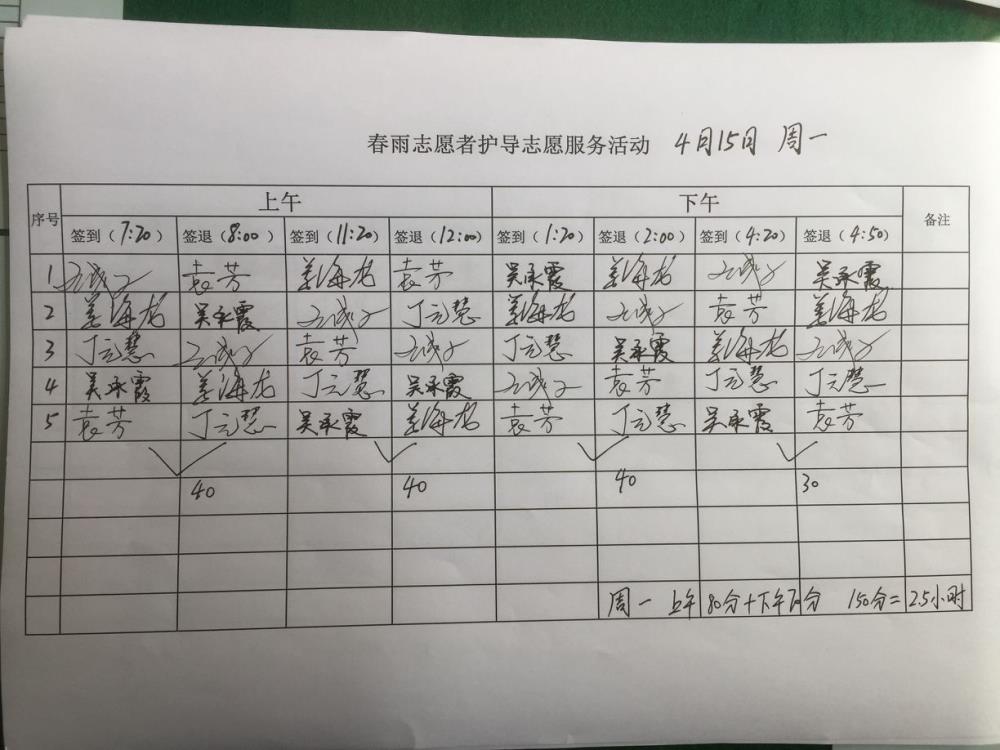 春雨志愿者护导志愿服务活动 4月15日 周一
序号 上午 下午 备注
签到（7:20） 签退（8:00） 签到（11:20） 签退（12:00） 签到（1:20） 签退（2:00） 签到（4:20） 签退（4:50）
1 袁芳 姜海龙 袁芳 吴承霞 姜海龙 吴承霞
2 姜海龙 吴承霞 丁元慧 姜海龙 袁芳 姜海龙
3 丁元慧 袁芳 丁元慧 吴承霞 姜海龙
4 吴承霞 姜海龙 丁元慧 吴承霞 袁芳 丁元慧 丁元慧
5 袁芳 丁元慧 吴承霞 姜海龙 袁芳 丁元慧 吴承霞 袁芳
40 40 40 30
周一 上午80分+下午70分 150分=2.5小时